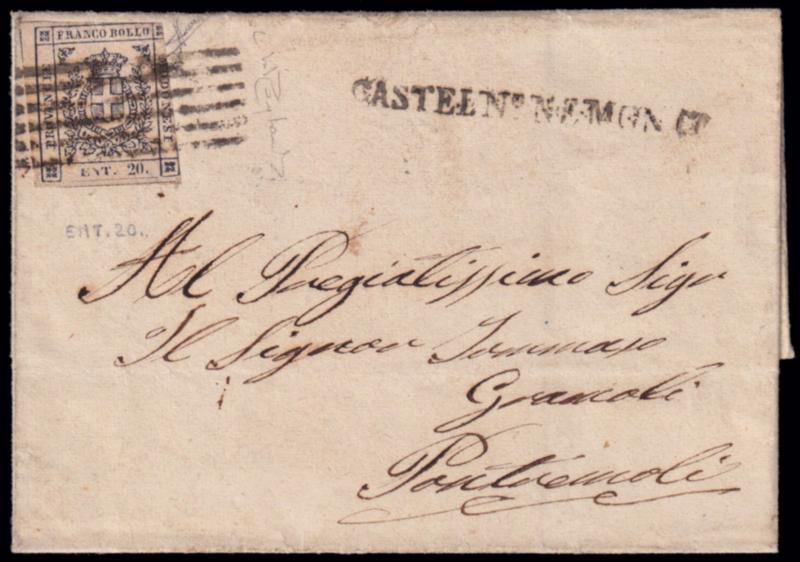 FRANCO BOLLO
PROVINCIE
MODONESI
ENT. 20.
CASTELNº NE MONTI
ENT.20.
Al Pregiatissimo Sigr
Il Signor Tommaso
Gramoli
Pontremoli